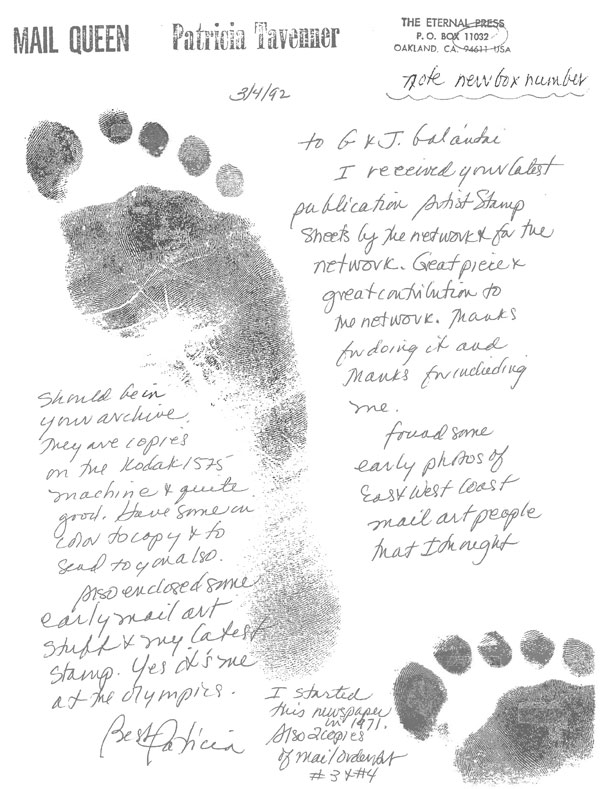 MAIL QUEEN
Patricia Tavenner
THE ETERNAL PRESS
P. O. BOX 11032
OAKLAND, CA. 94611 USA
note new box number
3/4/92
to G & J. Galántai
I received your latest
publication Artist Stamp
Sheets by the network & for the
network. Great piece &
great contribution to
the network. Thanks
for doing it and
thanks for including
me.
found some
early photos of
East & West Coast
mail art people
that I thought
should be in
your archive.
They are copies
on the Kodak 1575
machine & quite
good. Have some in
color to copy & to
send to you also.
Also enclosed some
early mail art
stuff & my latest
stamp. Yes it's me
at the Olympics.
Best Patricia
I started
this newspaper
in 1971.
Also 2 copies
of Mail Order Art
#3 & #4